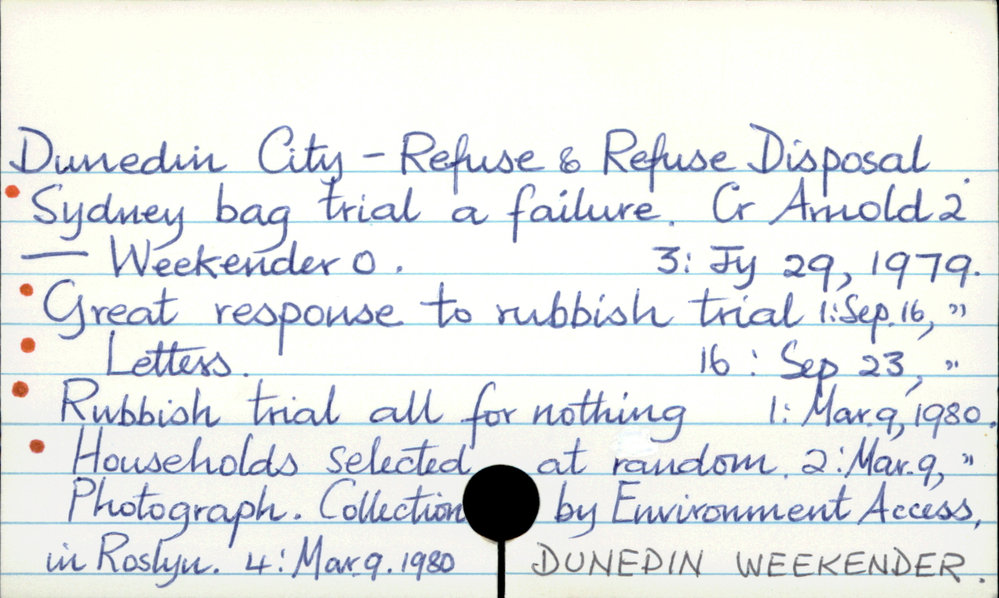 Dunedin City - Refuse & Refuse Disposal.
Sydney bag trial a failure. Cr Arnold 2
— Weekender O. 3: Jy 29, 1979.
Great response to rubbish trial 1: Sep. 16, "
Letters. 16: Sep 23, "
Rubbish trial all for nothing 1: Mar. 9, 1980.
Households selected at random. 2: Mar. 9, "
Photograph. Collection by Environment Access,
in Roslyn. 4: Mar. 9. 1980 DUNEDIN WEEKENDER.